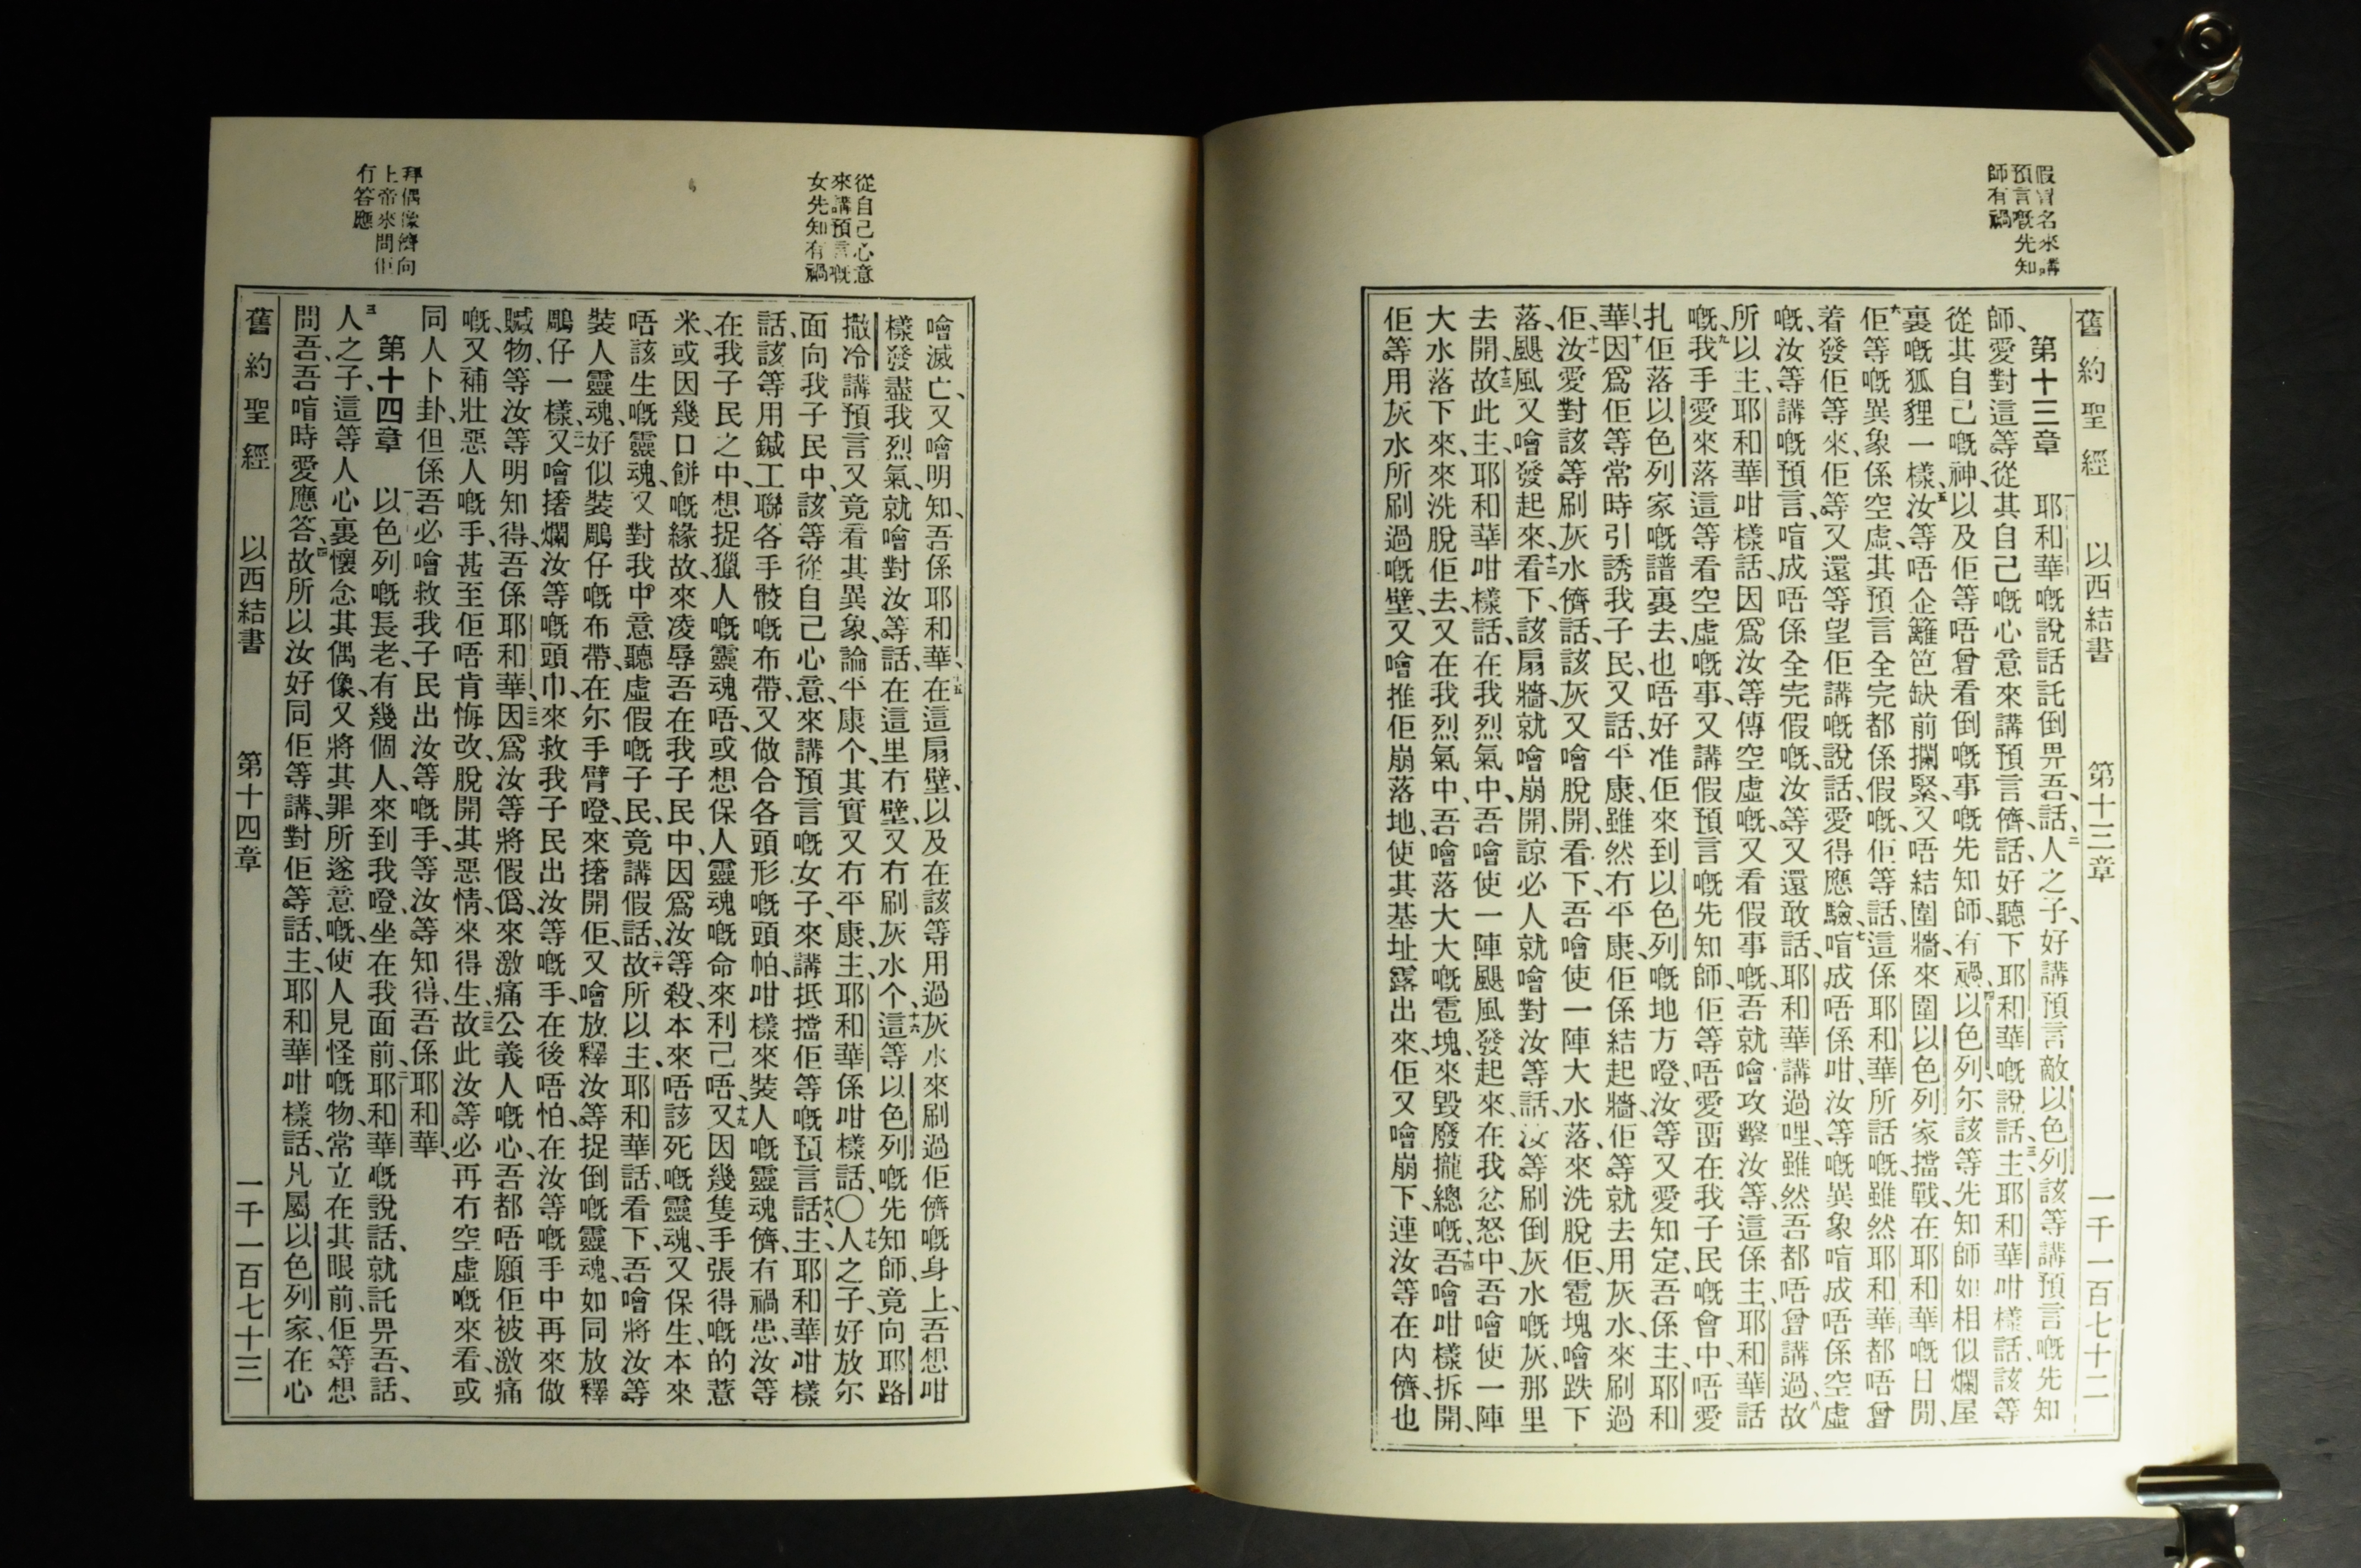 假冒名來講
預言嘅先知
師有禍
舊約聖經 以西結書 第十三章 一千一百七十二
第十三章 耶和華嘅說話託倒畀吾、話、二人之子、好講預言敵以色列該等講預言嘅先知
師、愛對這等從其自己嘅心意來講預言儕、話、好聽下耶和華嘅說話、三主耶和華咁樣話、該等
從其自己嘅神、以及佢等唔曾看倒嘅事嘅先知師、有禍、四以色列、尔該等先知師如相似爛屋
裏嘅狐狸一樣、五汝等唔企籬笆缺前攔緊、又唔結圍牆來圍以色列家擋戰、在耶和華嘅日間、
六佢等嘅異象係空虛、其預言全完都係假嘅、佢等話、這係耶和華所話嘅、雖然耶和華都唔曾
着發佢等來、佢等又還等望佢講嘅說話、愛得應驗、七㖒成唔係咁、汝等嘅異象㖒成唔係空虛
嘅、汝等講嘅預言、㖒成唔係全完假嘅、汝等又還敢話、耶和華講過哩、雖然吾都唔曾講過、八故
所以主、耶和華咁樣話、因爲汝等傳空虛嘅、又看假事嘅、吾就會攻擊汝等、這係主、耶和華話
嘅、九我手愛來落這等看空虛嘅事、又講假預言嘅先知師、佢等唔愛畱在我子民嘅會中、唔愛
扎佢落以色列家嘅譜裏去、也唔好准佢來到以色列嘅地方噔、汝等又愛知定、吾係主、耶和
華、十因爲佢等常時引誘我子民、又話、平康、雖然冇平康、佢係結起牆、佢等就去用灰水、來刷過
佢、十一汝愛對該等刷灰水儕、話、該灰又噲脫開、看下、吾噲使一陣大水落、來洗脫佢、雹塊噲跌下
落、颶風又噲發起來、十二看下、該扇牆就噲崩開、諒必人就噲對汝等話、汝等刷倒灰水嘅灰、那里
去開、十三故此主、耶和華咁樣話、在我烈氣中、吾噲使一陣颶風發起來、在我忿怒中、吾噲使一陣
大水落下來、來洗脫佢去、又在我烈氣中、吾噲落大大嘅雹塊、來毀廢攏總嘅、十四吾噲咁樣拆開、
佢等用灰水所刷過嘅壁、又噲推佢崩落地、使其基址露出來、佢又噲崩下、連汝等在內儕、也
從自己心意
來講預言嘅
女先知有禍
拜偶像儕向
上帝來問佢
冇答應
噲滅亡、又噲明知、吾係耶和華、十五在這扇壁、以及在該等用過灰水來刷過佢儕嘅身上、吾想咁
樣發盡我烈氣、就噲對汝等話、在這里冇壁、又冇刷灰水个、十六這等以色列嘅先知師、竟向耶路
撒冷講預言、又竟看其異象、論平康个、其實又冇平康、主、耶和華係咁樣話、〇十七人之子、好放尔
面向我子民中、該等從自己心意、來講預言嘅女子、來講抵擋佢等嘅預言、十八話、主、耶和華咁樣
話、該等用鍼工聯各手骹嘅布帶、又做合各頭形嘅頭帕、咁樣來裝人嘅靈魂儕、有禍患、汝等
在我子民之中、想捉獵人嘅靈魂唔、或想保人靈魂嘅命來利己唔、十九又因幾隻手張得嘅的薏
米、或因幾口餅嘅緣故、來凌辱吾在我子民中、因爲汝等殺、本來唔該死嘅靈魂、又保生、本來
唔該生嘅靈魂、又對我中意聽虛假嘅子民、竟講假話、二十故所以主、耶和華話、看下、吾噲將汝等
裝人靈魂、好似裝鵰仔嘅布帶、在尔手臂噔、來撦開佢、又噲放釋汝等捉倒嘅靈魂、如同放釋
鵰仔一樣、二一又噲撦爛汝等嘅頭巾、來救我子民出汝等嘅手、在後唔怕在汝等嘅手中再來做
贓物、等汝等明知得、吾係耶和華、二二因爲汝等將假僞、來激痛公義人嘅心、吾都唔願佢被激痛
嘅、又補壯惡人嘅手、甚至佢唔肯悔改、脫開其惡情、來得生、二三故此汝等必再冇空虛嘅來看、或
同人卜卦、但係吾必噲救我子民出汝等嘅手、等汝等知得、吾係耶和華、
第十四章 以色列嘅長老、有幾個人、來到我噔、坐在我面前、二耶和華嘅說話、就託畀吾、話、
三人之子、這等人心裏懷念其偶像、又將其罪所遂意嘅、使人見怪嘅物、常立在其眼前、佢等想
問吾、吾㖒時愛應答、四故所以汝好同佢等講、對佢等話、主、耶和華咁樣話、凡屬以色列家、在心
舊約聖經 以西結書 第十四章 一千一百七十三